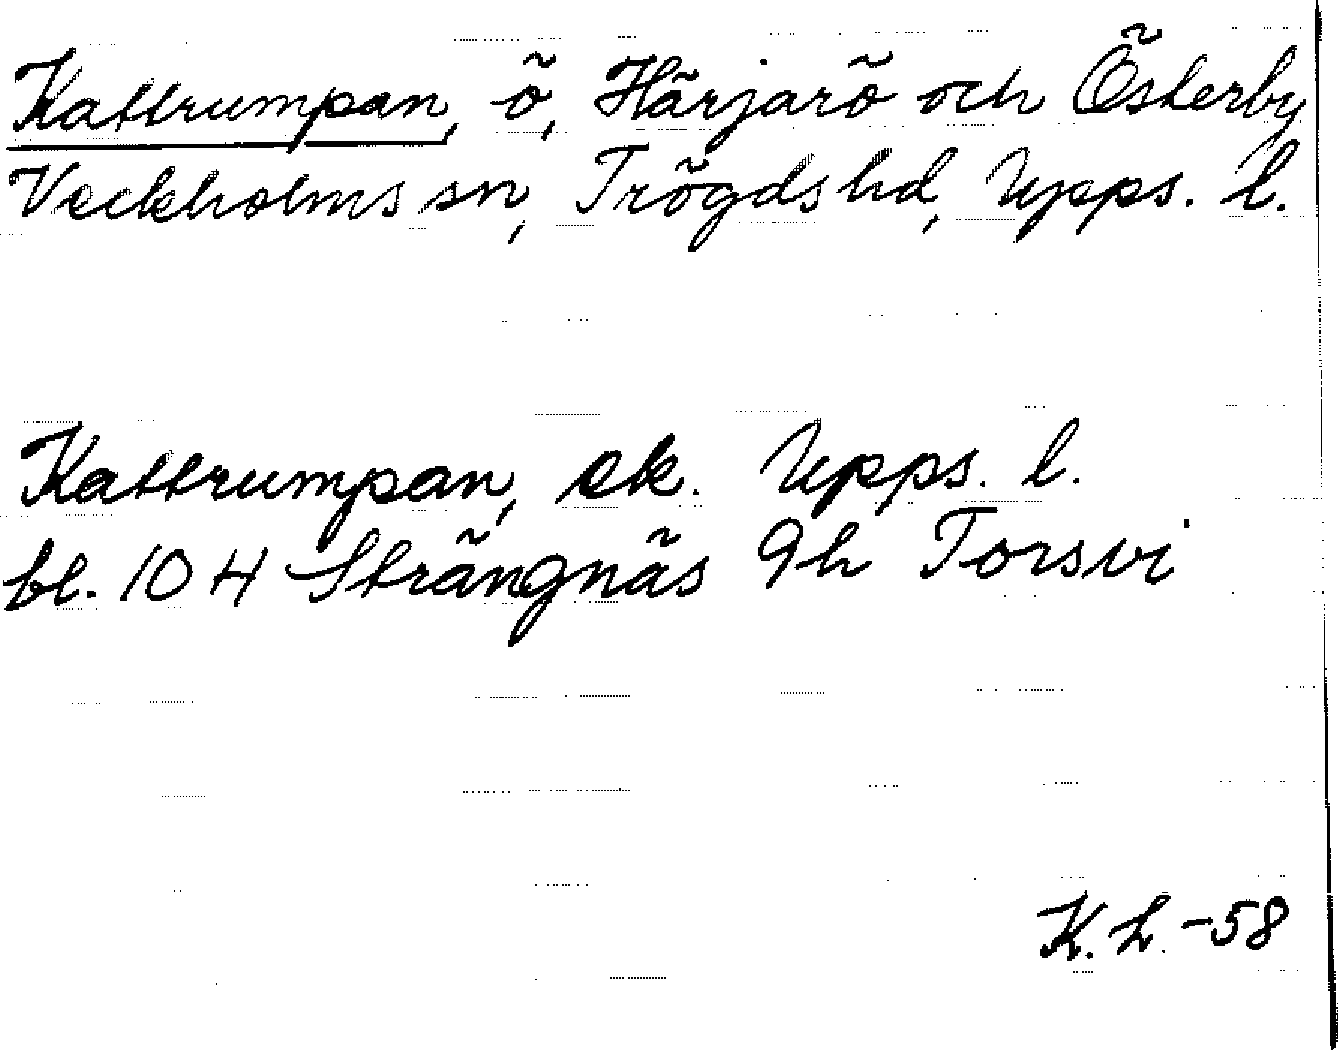 Kattrumpan, ö, Härjarö och Österby
Veckholms sn, Trögds hd, Upps. l.
Kattrumpan, ek. Upps. l.
bl. 10 H Strängnäs 9h Torsvi
K. L. -58